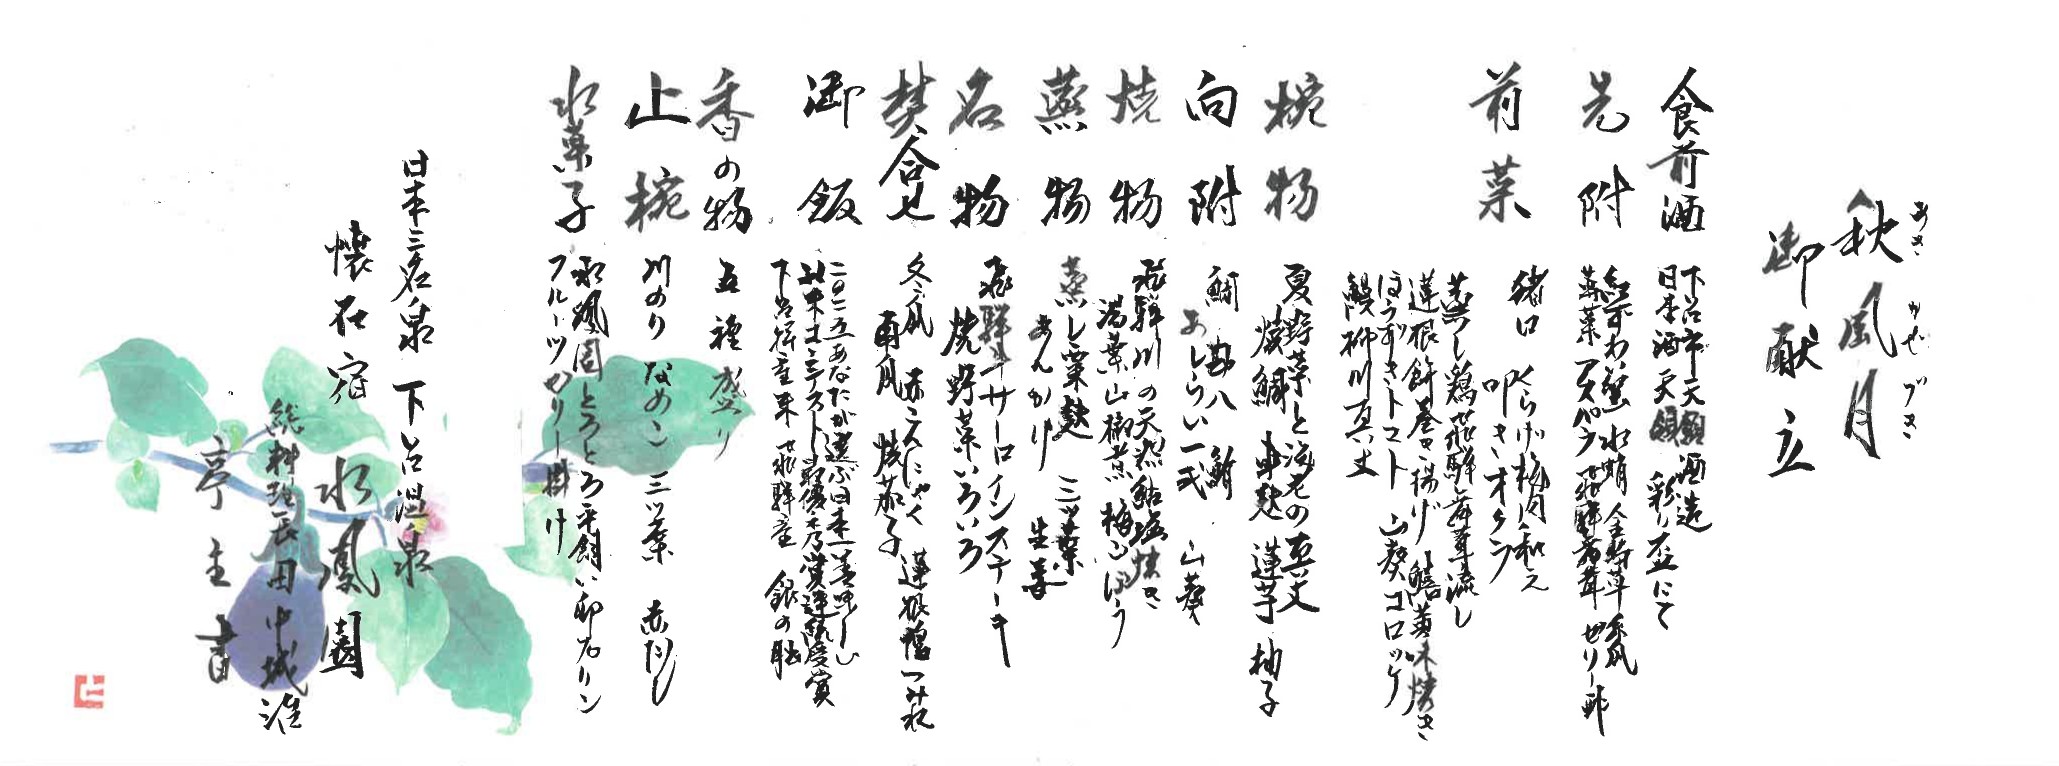 秋風月
あき かぜ づき
御献立
食前酒
下呂市 天領酒造
日本酒 天領 彩り盃にて
先附
紅ずわい蟹 水蛸 金時草 冬瓜
蓴菜 アスパラ 飛騨 ゼリー酢
前菜
猪口 くらげ梅肉和え
叩きオクラ
蒸し鶏 飛騨舞茸流し
蓮根餅巻き揚げ 鱚薫味焼き
ほうずきトマト 山葵コロッケ
鰻柳川真丈
椀物
夏野菜と海老の真丈
焼鱧 車麩 蓮芋 柚子
向附
鯛 勘八 鮪
あしらい一式 山葵
焼物
飛騨川の天然鮎塩焼き
湯葉山椒煮 梅ごぼう
蒸物
蒸し粟麩 三ッ葉
あんかけ 生姜
名物
飛騨牛サーロインステーキ
焼野菜いろいろ
焚合せ
冬瓜 赤こんにゃく 蓮根饅 つみれ
南瓜 焼茄子
御飯
二〇一五あなたが選ぶ日本一美味しい
お米コンテスト 最優秀賞連続受賞
下呂僝産米 飛騨産 銀の朏
香の物
五種盛り
止椀
川のり なめこ 三ッ葉 赤だし
水菓子
水鳳園とろとろ平飼い卵プリン
フルーツゼリー掛け
日本三名泉 下呂温泉
懐石宿 水鳳園
総料理長 田中城淮
亭主 書